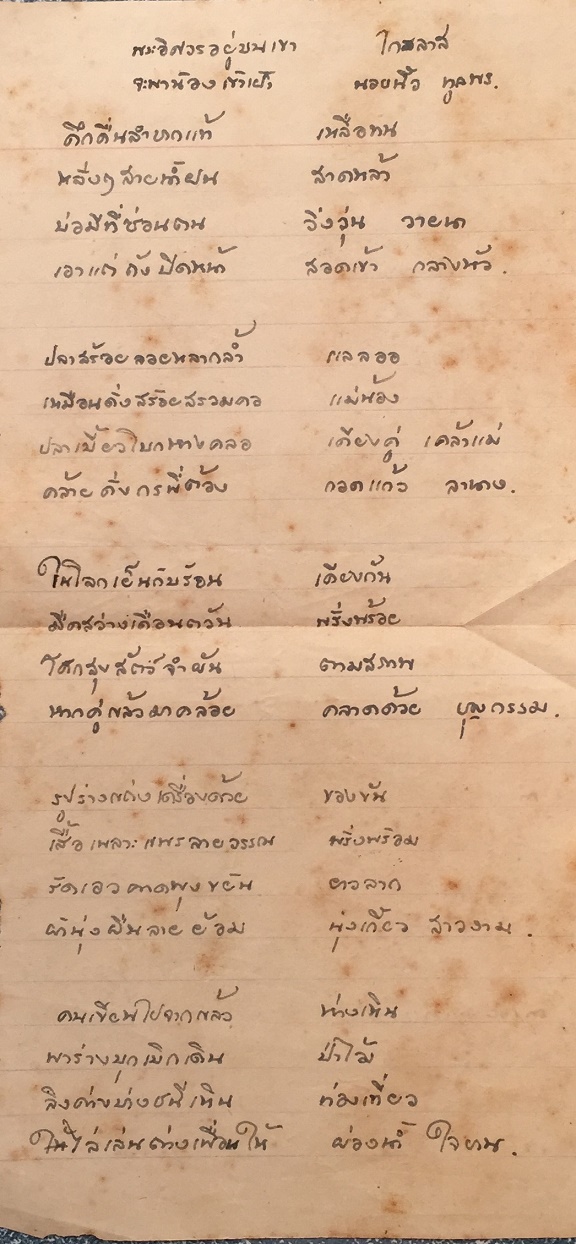 พระอิศวรอยู่บนเขา ไกรลาส
จะพาน้องเข้าเฝ้า นอยนิ้ว ทูลพร.
ดึกดื่นลำบากแท้ เหลือทน
หลั่งๆสายน้ำฝน สาดหล้า
บ่อมีที่ซ่อนตน จึ่งวุ่น วายนา
เอาแต่ถังปิดหน้า สอดเข้า กลางหัว.
ปลาสร้อยลอยหลากล้ำ แลลออ
เหมือนดั่งสร้อยสรวมคอ แม่น้อง
ปลาเบี้ยวใบกหางคลอ เคียงคู่ เคล้าแม่
คล้ายดั่งกรพี่ต้อง กอดแก้ว ลานาง.
ในโลกเย็นกับร้อน เคียงกัน
มืดสว่างเดือนตวัน พรั่งพร้อย
โศกสุขสัตว์จำผัน ตามสภาพ
หากคู่แล้วมาคล้อย คลาดด้วย บุญกรรม.
รูปร่างแต่งเครื่องด้วย ของขัน
เสื้อเพลาะแพรลายวรรณ พริ้งพร้อม
รัดเอวคาดพุงขยัน ยาวลาก
ผ้านุ่งผืนลายย้อม นุ่งเกี้ยว สาวงาม.
คนเขียนไปจากแล้ว ห่างเหิน
พาร่างบุกเบิกเดิน ป่าไม้
ลิงค่างบ่างชนีเหิน ท่องเที่ยว
ให้ไล่เล่นต่างเพื่อนให้ ผ่องน้ำ ใจยาน.